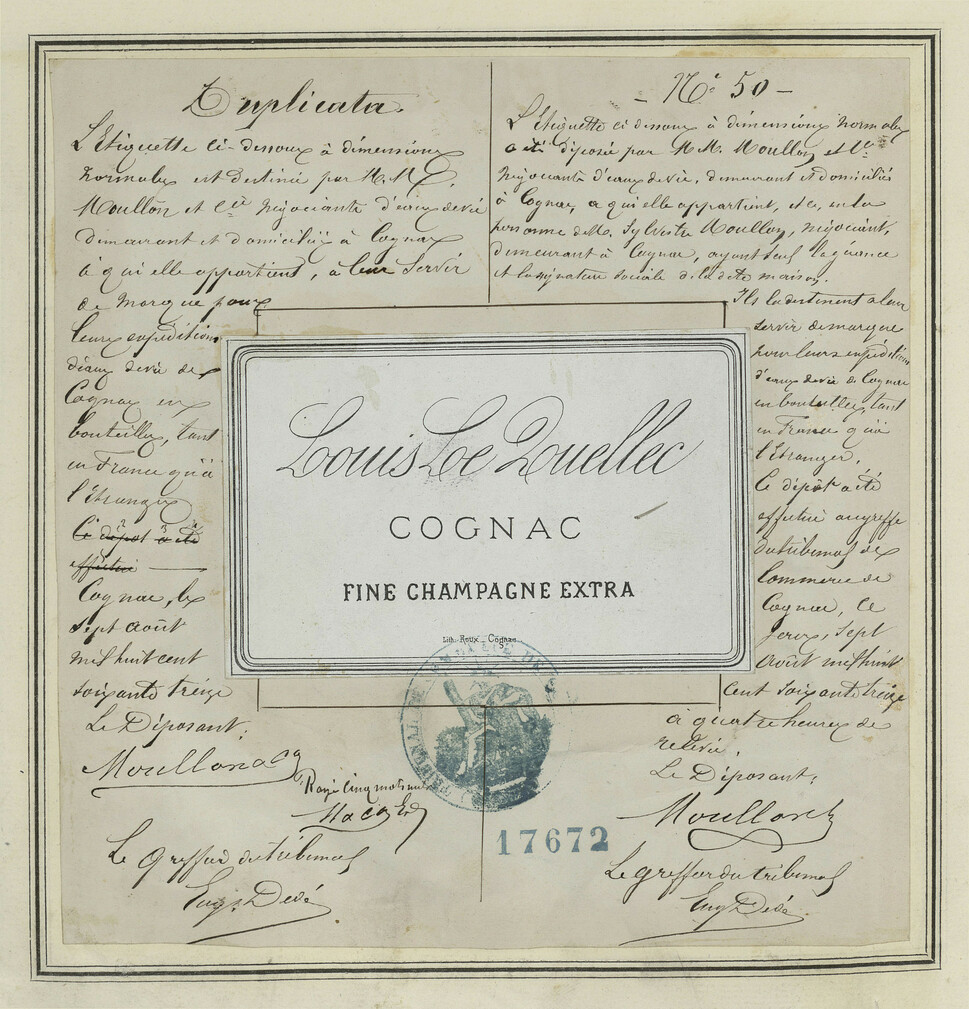 Duplicata
L'Etiquette ci-dessous à dimensions
normales est destinée par M.M.
Moullon et Cie négociants d'eaux de vie
demeurant et domiciliés à Cognac
à qui elle appartient, à leur servir
de marque pour
leurs expéditions
d'eaux de vie de
Cognac en
bouteilles, tant
en France qu'à
l'étranger
Ce dépôt a été
effectué
Cognac, le
sept août
mil huit cent
soixante treize
Le Déposant,
Moullon
Rayé cinq mots nuls
Le greffier du tribunal
Eug. Dedé
- No 50 -
L'Etiquette ci dessous à dimensions normales
a été déposée par M.M. Moullon et Cie
négociants d'eaux de vie, demeurant et domiciliés
à Cognac, à qui elle appartient, et ce, en la
personne de M. Sylvestre Moullon, négociant,
demeurant à Cognac, ayant seul la gérance
et la signature sociale de la dite maison.
Ils la destinent à leur
servir de marque
pour leurs expéditions
d'eaux de vie de Cognac
en bouteilles, tant
en France qu'à
l'Etranger.
Ce dépôt a été
effectué au greffe
du tribunal de
Commerce de
Cognac, le
jeudi, sept
août mil huit
cent soixante treize
à quatre heures de
relevée.
Le Déposant,
Moullon
Le greffier du tribunal
Eug Dedé
Louis Le Quellec
COGNAC
FINE CHAMPAGNE EXTRA
Lith. Roux - Cognac
17672